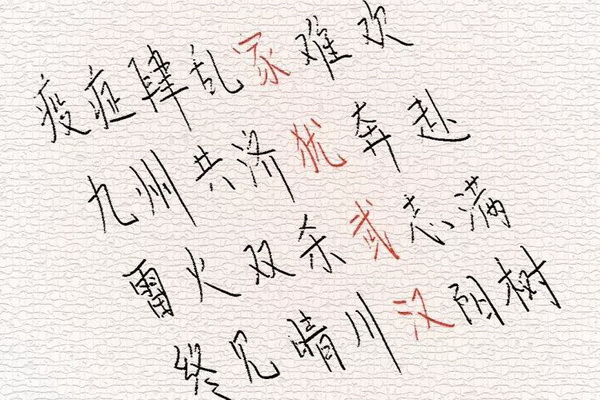 疫症肆乱家难欢
九州共济犹奔赴
雷火双杀武志满
终见晴川汉阳树